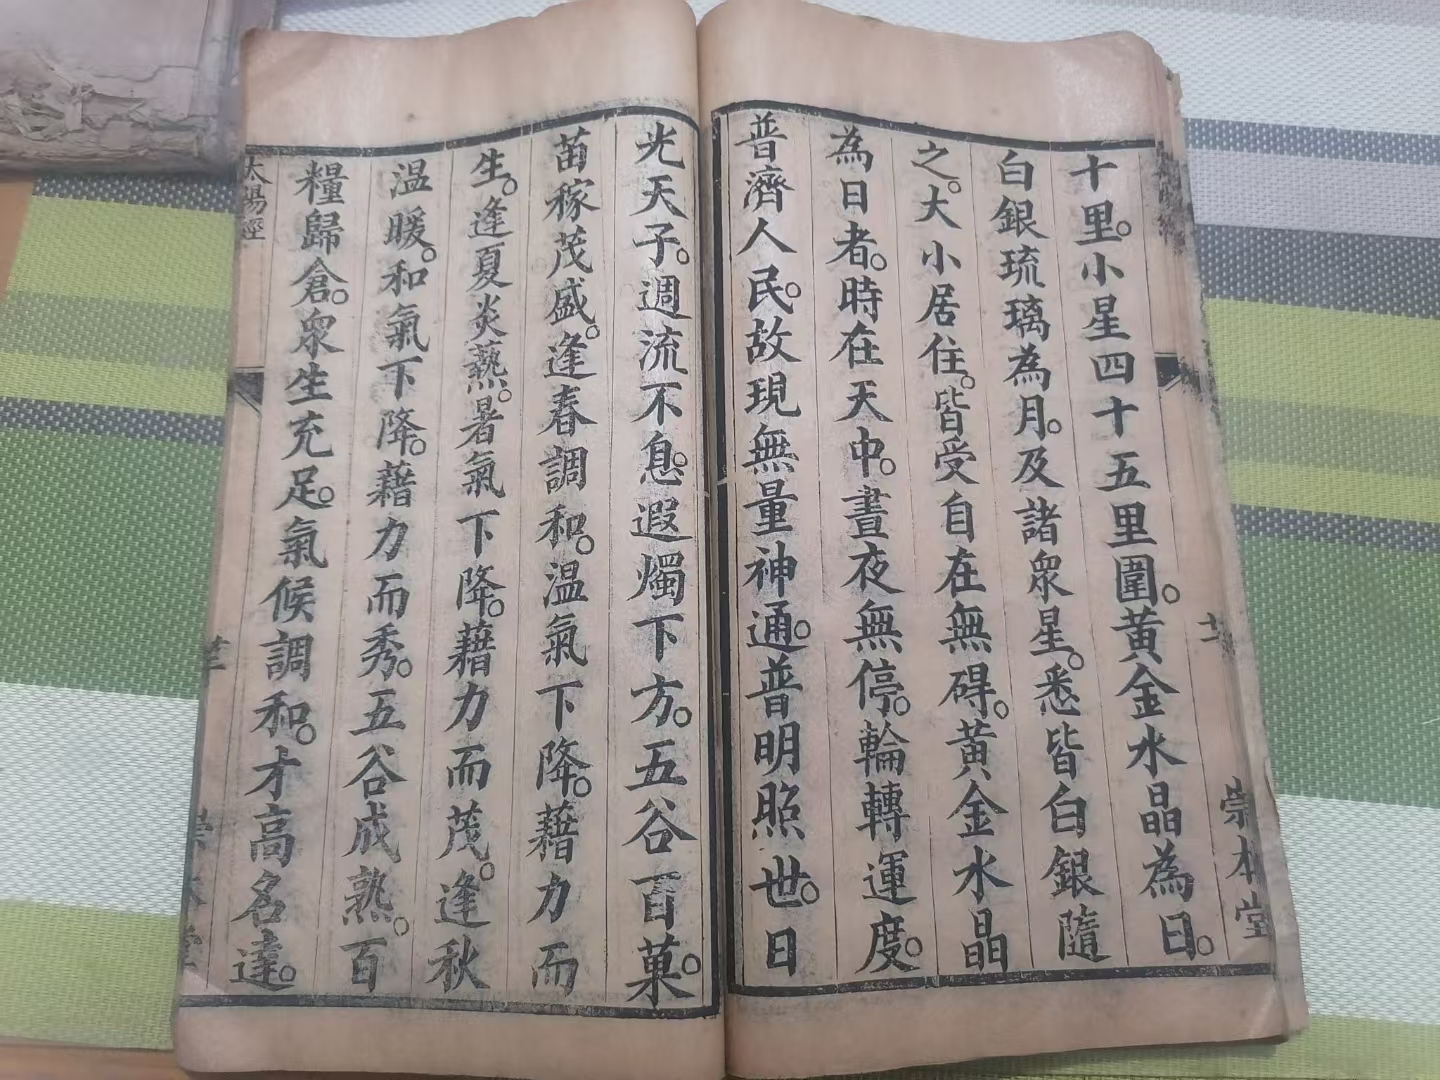 十里。小星四十五里圍。黄金水晶為日。
白銀琉璃為月。及諸眾星。悉皆白銀隨
之。大小居住。皆受自在無碍。黄金水晶
為日者。時在天中。晝夜無停。輪轉運度。
普濟人民。故現無量神通。普明照世。日
光天子。週流不息。遐燭下方。五谷百菓。
苗稼茂盛。逢春調和。温氣下降。藉力而
生。逢夏炎爇。暑氣下降。藉力而茂。逢秋
温暖。和氣下降。藉力而秀。五谷成熟。百
糧歸倉。眾生充足。氣候調和。才高名達。
太陽經
崇本堂